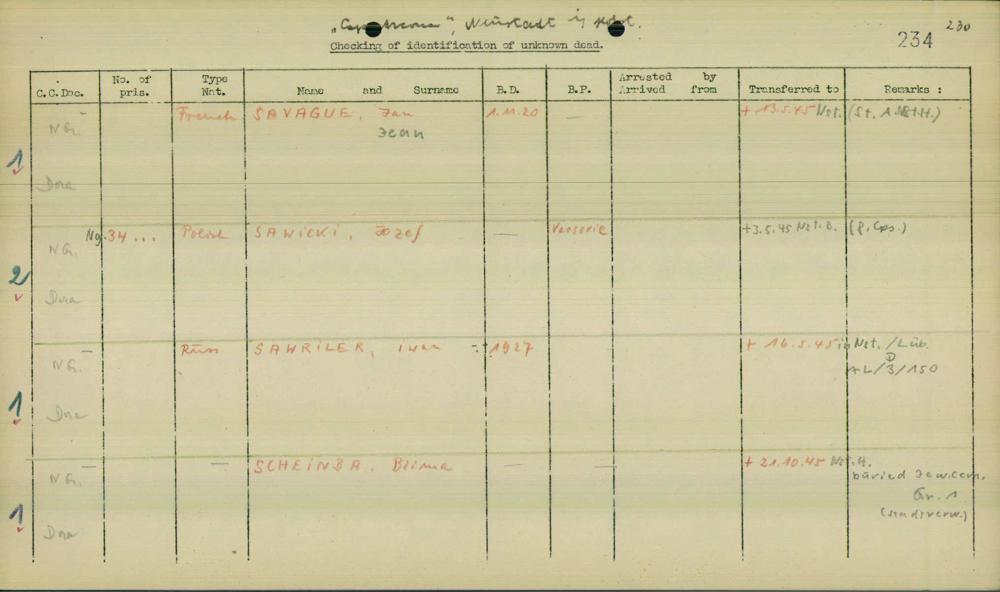 ", Neustadt i/ Holst.
230
234
Checking of identification of unknown dead.
C.C.Doc. No. of pris. Type Nat. Name and Surname B.D. B.P. Arrested by Arrived from Transferred to Remarks :
1 NG. — Dora French SAVAGUE, Jan 1.11.20 — + 13.5.45 Nst. (St. A Nst.H.)
Jean
2 NG. Dora Ng.34 ... Polish SAWICKI, Jozef — +3.5.45 Nst.
1 NG. — Dora Russ SAWRILER, iwan 1927 + 16.5.45 in Nst./Lüb.
D
AL/3/150
1 NG. — Dora — SCHEINBA, Blima — — + 21.10.45 Nst.H.
buried Jew.cem.
Gr. 1